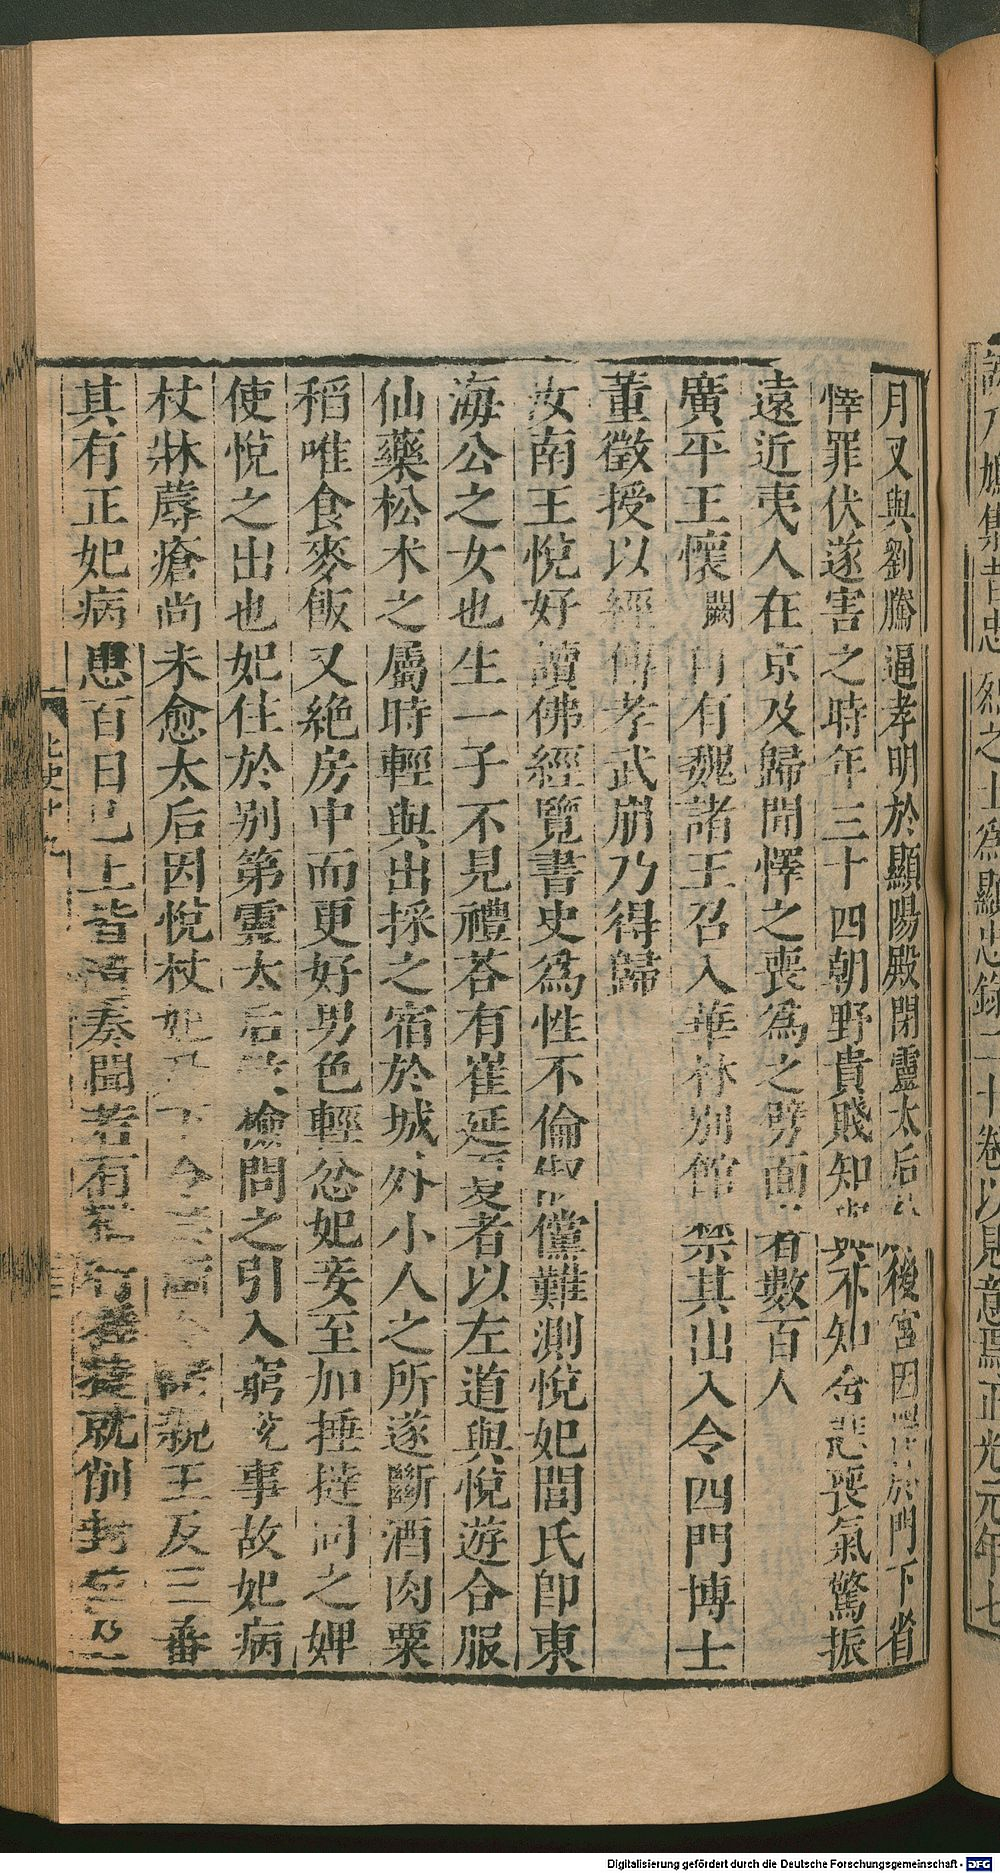 月又與劉騰逼孝明於顯陽殿閉靈太后於後宮因懌於門下省
懌罪伏遂害之時年三十四朝野貴賤知與不知含悲喪氣驚振
遠近夷人在京及歸聞懌之喪為之劈面者數百人
廣平王懷闕有魏諸王召入華林別館禁其出入令四門博士
董徵授以經傳孝武崩乃得歸
汝南王悅好讀佛經覽書史為性不倫俶儻難測悅妃閭氏卽東
海公之女也生一子不見禮荅有崔延夏者以左道與悅遊合服
仙藥松朮之屬時輕與出採之宿於城外小人之所遂斷酒肉粟
稻唯食麥飯又絶房中而更好男色輕忿妃妾至加捶撻同之婢
使悅之出也妃住於別第靈太后敕檢問之引入窮悅事故妃病
杖牀蓐瘡尚未愈太后因悅杖妃乃下令禁斷令諸親王及三番
其有正妃病患百日已上皆遣奏聞若有猶行捶撻就削封位及
北史十九
誠乃鳩集昔忠烈之士為顯忠錄二十卷以見意焉正光元年七
Digitalisierung gefördert durch die Deutsche Forschungsgemeinschaft - DFG